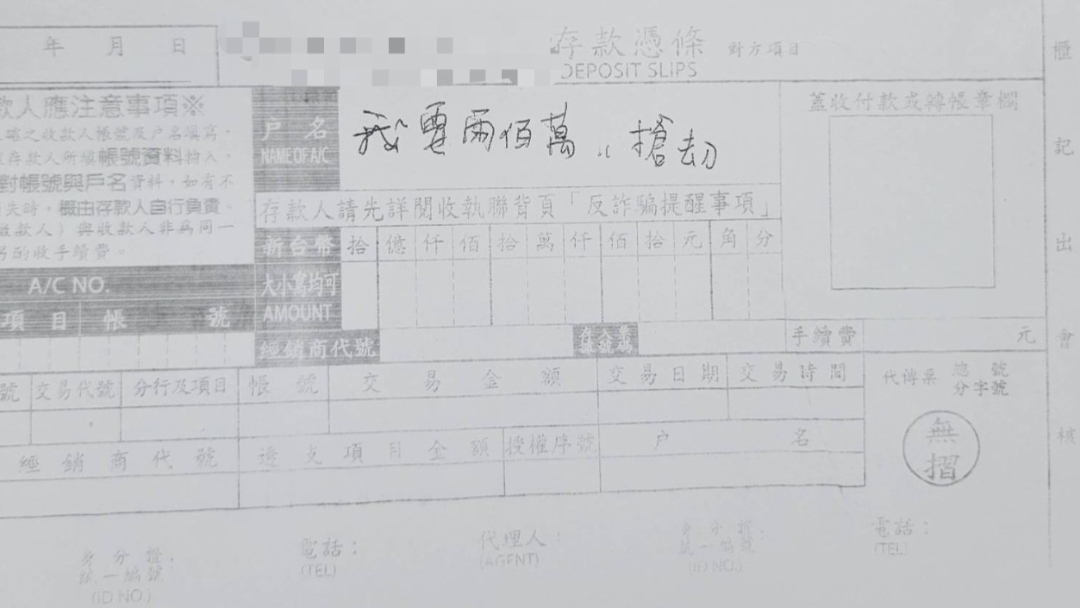 年 月 日
存款憑條 對方項目
DEPOSIT SLIPS
款人應注意事項※
對帳號與戶名資料,如有不
失時,概由存款人自行負責。
款人)與收款人非為同一
戶名
NAME OF A/C
我要兩佰萬,, 搶劫
存款人請先詳閱收執聯背頁「反詐騙提醒事項」
新台幣 拾 億 仟 佰 拾 萬 仟 佰 拾 元 角 分
大小寫均可
AMOUNT
A/C NO.
項目 帳 號
經銷商代號
蓋收付款或轉帳章欄
手續費 元
號 交易代號 分行及項目 帳號 交易金額 交易日期 交易時間
經銷商代號 透支項目金額 授權序號 戶 名
代傳票 總 號
分字號
無
摺
櫃
記
出
會
核
身分證.
統一編號
(ID NO.)
電話:
(TEL)
代理人:
(AGENT)
身分證.
統一編號
(ID NO.)
電話:
(TEL)